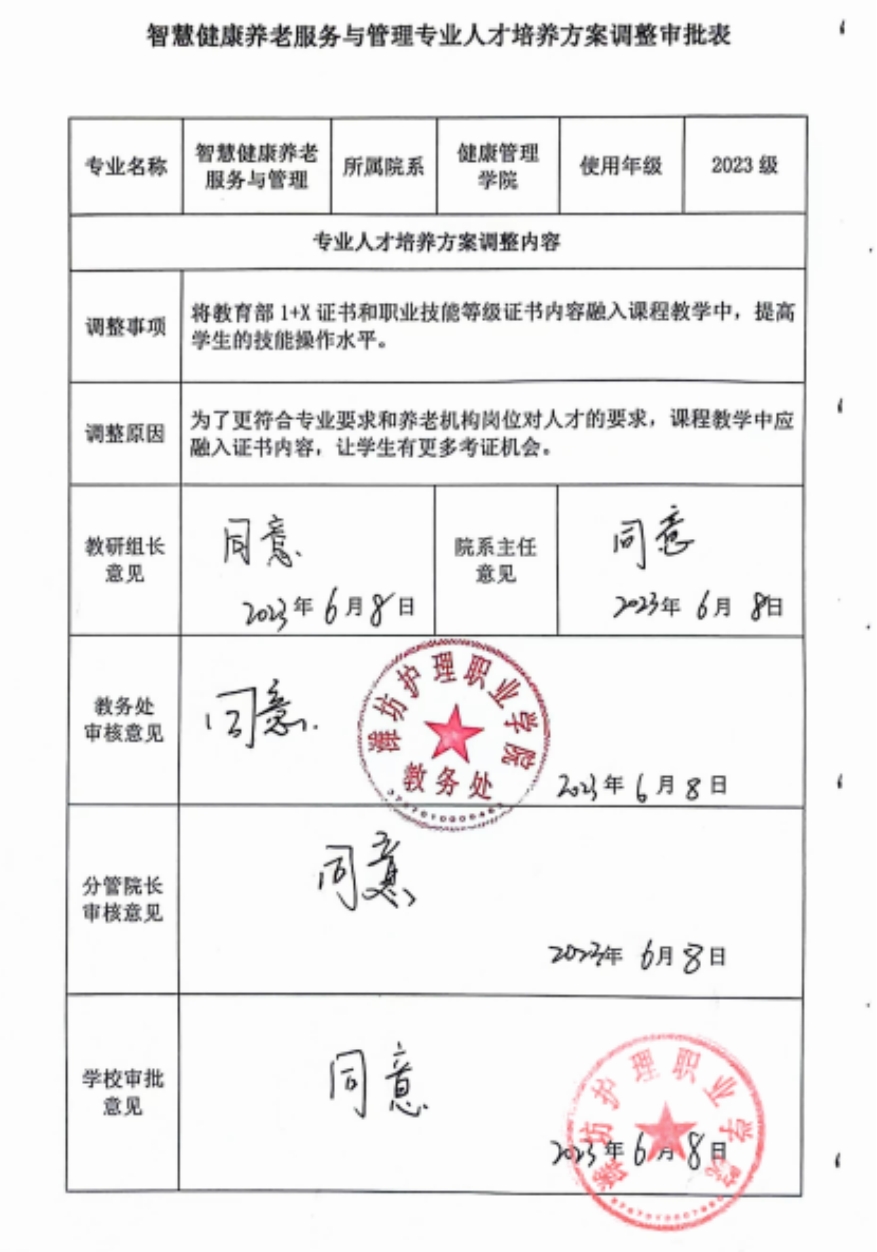 智慧健康养老服务与管理专业人才培养方案调整审批表
专业名称
智慧健康养老
服务与管理
所属院系
健康管理
学院
使用年级
2023 级
专业人才培养方案调整内容
调整事项
将教育部 1+X 证书和职业技能等级证书内容融入课程教学中，提高
学生的技能操作水平。
调整原因
为了更符合专业要求和养老机构岗位对人才的要求，课程教学中应
融入证书内容，让学生有更多考证机会。
教研组长
意见
同意.
2023年 6月 8日
院系主任
意见
同意
2023年 6月 8日
教务处
审核意见
同意.
潍坊护理职业学院
教务处
2023年 6月 8日
分管院长
审核意见
同意
2023年 6月 8日
学校审批
意见
同意
2023年 6月 8日
潍坊护理职业学院